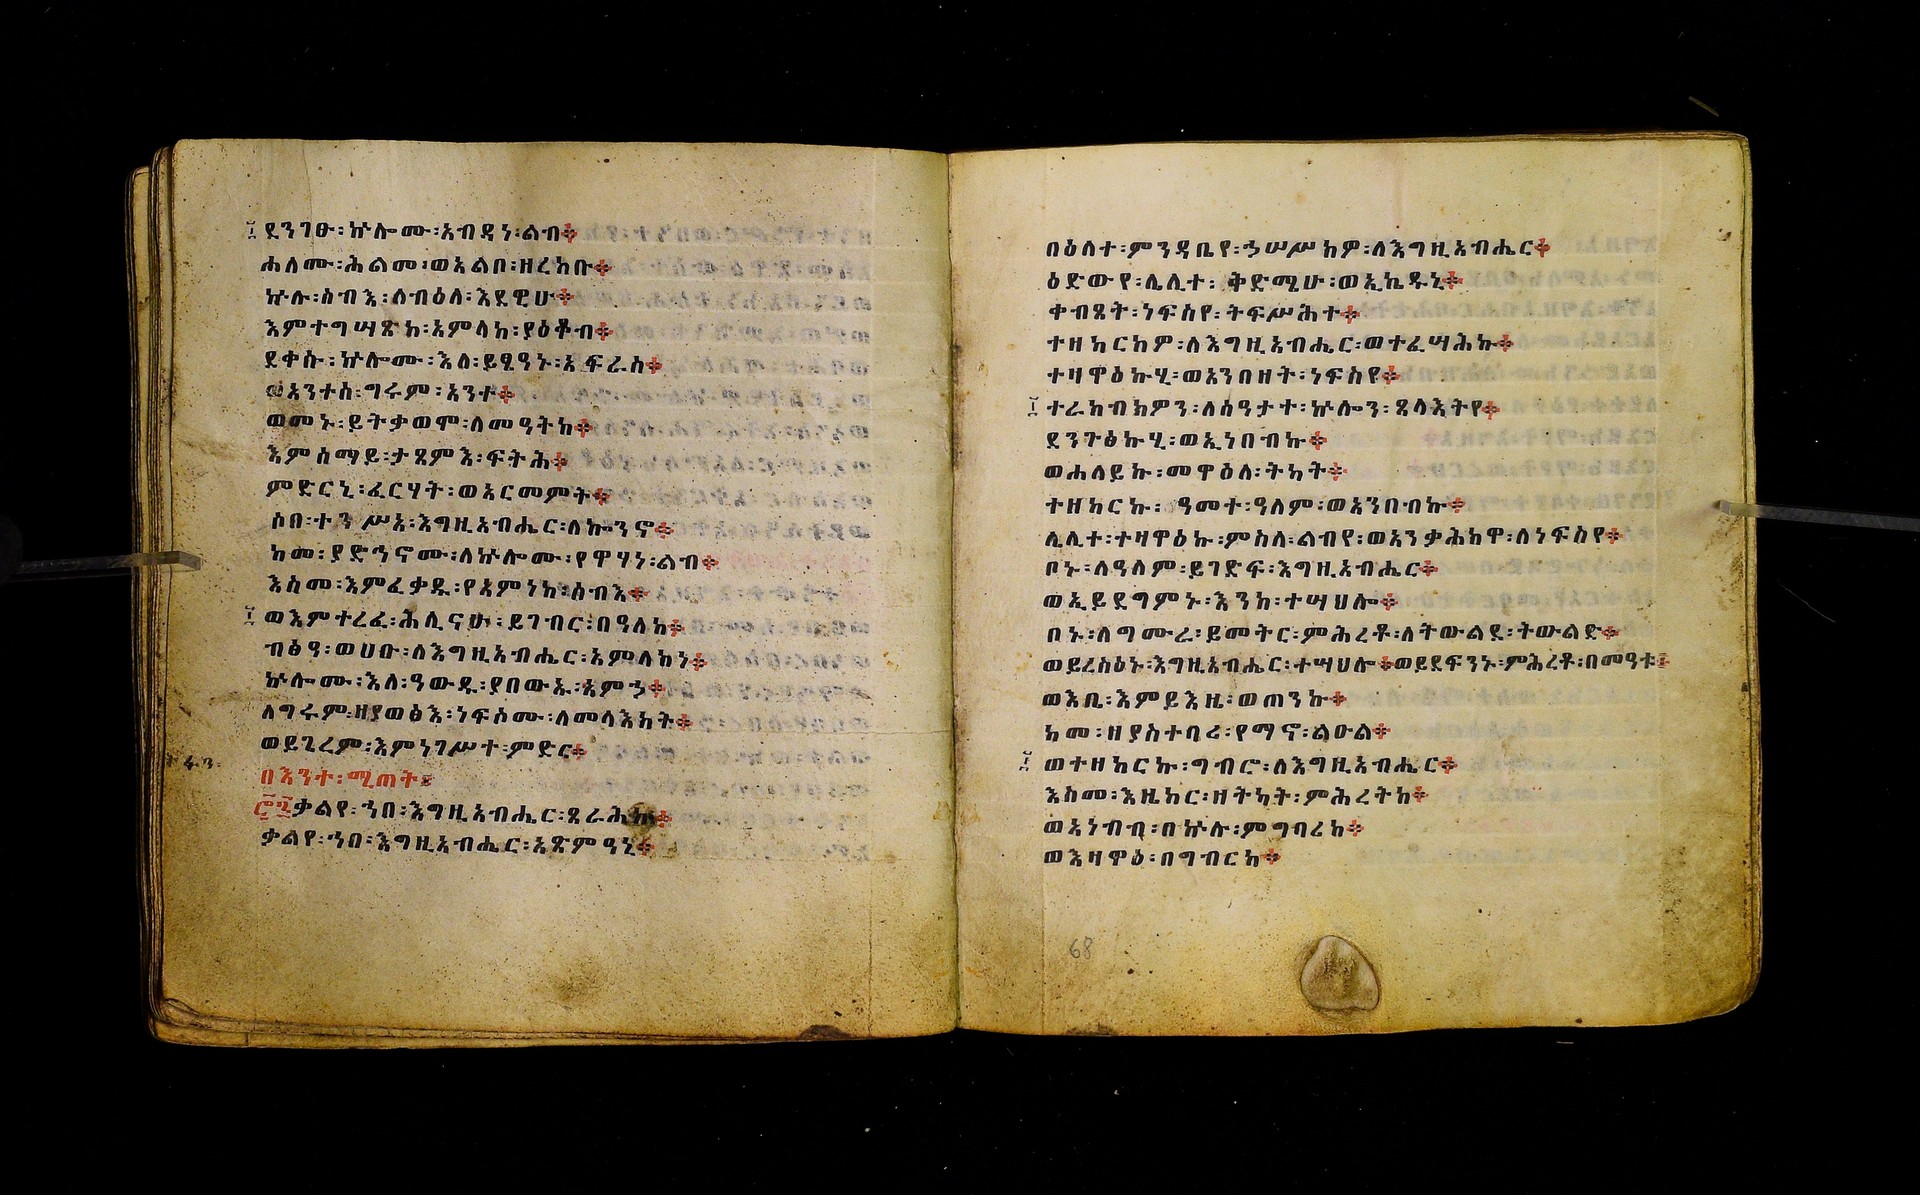 ደንገፁ፡ኵሎሙ፡አብዳነ፡ልብ፨
ሐለሙ፡ሕልመ፡ወአልቦ፡ዘረከቡ፨
ኵሉ፡ሰብእ፡ለብዕለ፡እደዊሁ፨
እምተግሣጽከ፡አምላከ፡ያዕቆብ፨
ደቀሱ፡ኵሎሙ፡እለ፡ይፂዓኑ፡አፍራሰ፨
ወአንተሰ፡ግሩም፡አንተ፨
ወመኑ፡ይትቃወሞ፡ለመዓትከ፨
እምሰማይ፡ታጸምእ፡ፍትሕ፨
ምድርኒ፡ፈርሃት፡ወአርመምት፨
ሶበ፡ተንሥአ፡እግዚአብሔር፡ለኰንኖ፨
ከመ፡ያድኅኖሙ፡ለኵሎሙ፡የዋሃነ፡ልብ፨
እስመ፡እምፈቃዱ፡የአምነከ፡ሰብእ፨
ወእምተረፈ፡ሕሊናሁ፡ይገብር፡በዓለከ፨
ብፅዓ፡ወሀቡ፡ለእግዚአብሔር፡አምላክነ፨
ኵሎሙ፡እለ፡ዓውዱ፡ያበውኡ፡አምኃ፨
ለግሩም፡ዘያወፅእ፡ነፍሶሙ፡ለመላእክት፨
ወይጌረም፡እምነገሥተ፡ምድር፨
በእንተ፡ሚጠት፨
፸፯ቃልየ፡ኀበ፡እግዚአብሔር፡ጸራሕኩ፨
ቃልየ፡ኀበ፡እግዚአብሔር፡አጽምዓኒ፨
በዕለተ፡ምንዳቤየ፡ኃሠሥክዎ፡ለእግዚአብሔር፨
ዕድውየ፡ሌሊተ፡ቅድሜሁ፡ወኢኬዱኒ፨
ቀብጸት፡ነፍስየ፡ትፍሥሕተ፨
ተዘከርክዎ፡ለእግዚአብሔር፡ወተፈሣሕኩ፨
ተዛዋዕኩሂ፡ወአንበዘት፡ነፍስየ፨
ተራከብክዎን፡ለሰዓታተ፡ኵሎን፡ጸላእትየ፨
ደንገፅኩሂ፡ወኢነበብኩ፨
ወሐለይኩ፡መዋዕለ፡ትካት፨
ተዘከርኩ፡ዓመተ፡ዓለም፡ወአንበብኩ፨
ሌሊተ፡ተዛዋዕኩ፡ምስለ፡ልብየ፡ወአንቃሕክዋ፡ለነፍስየ፨
ቦኑ፡ለዓለም፡ይገድፍ፡እግዚአብሔር፨
ወኢይደግምኑ፡እንከ፡ተሣህሎ፨
ቦኑ፡ለግሙራ፡ይመትር፡ምሕረቶ፡ለትውልደ፡ትውልድ፨
ወይረስዕኑ፡እግዚአብሔር፡ተሣህሎ፨ወይደፍንኑ፡ምሕረቶ፡በመዓቱ፨
ወእቤ፡እምይእዜ፡ወጠንኩ፨
ከመ፡ዘያስተባሪ፡የማኖ፡ልዑል፨
ወተዘከርኩ፡ግብሮ፡ለእግዚአብሔር፨
እስመ፡እዜከር፡ዘትካት፡ምሕረትከ፨
ወአነብብ፡በኵሉ፡ምግባሪከ፨
ወእዛዋዕ፡በግብርከ፨
68